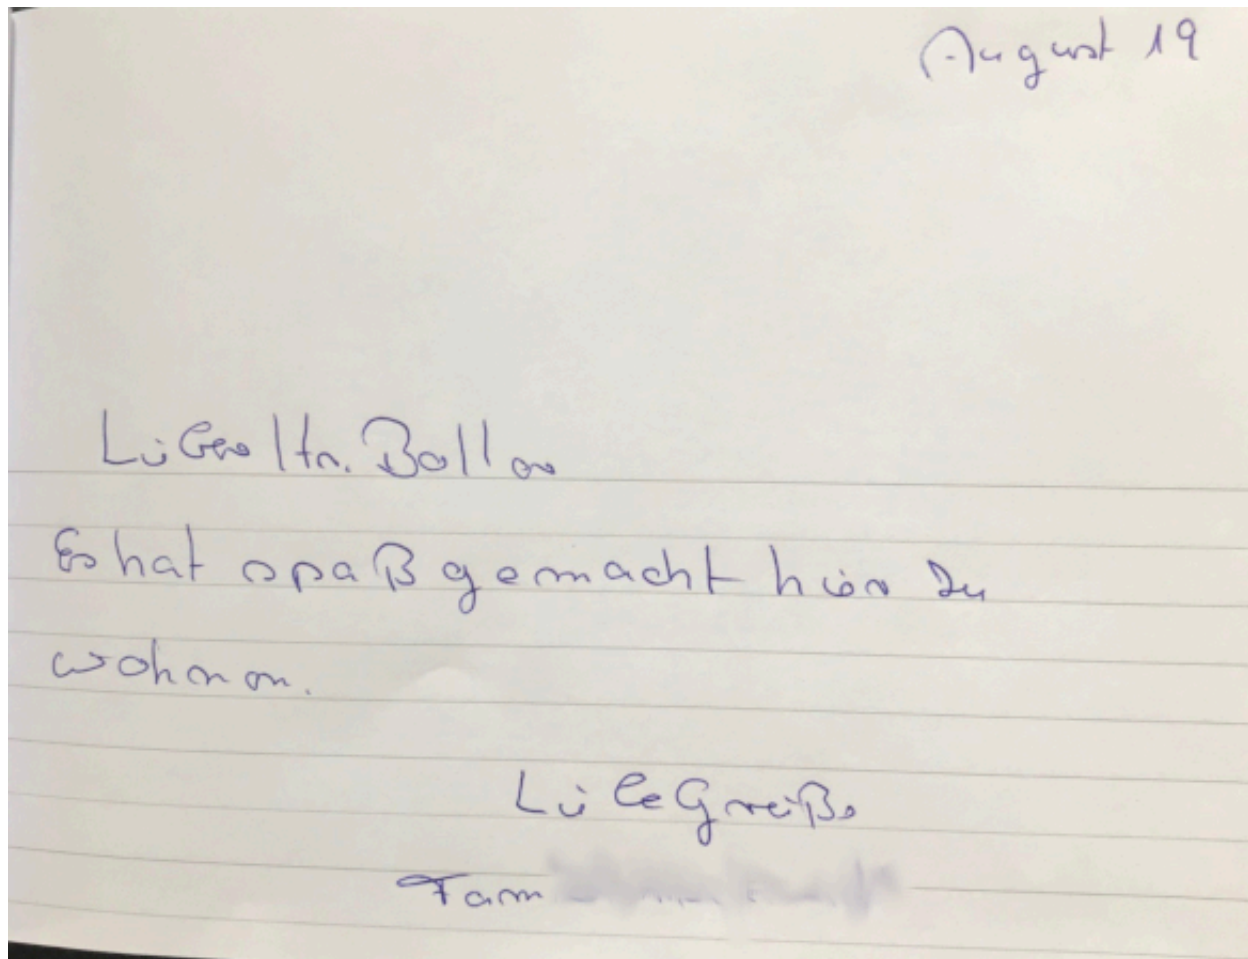 August 19
Lieber Hr. Baller
Es hat spaß gemacht hier zu
wohnen.
Liebe Grüße
Fam